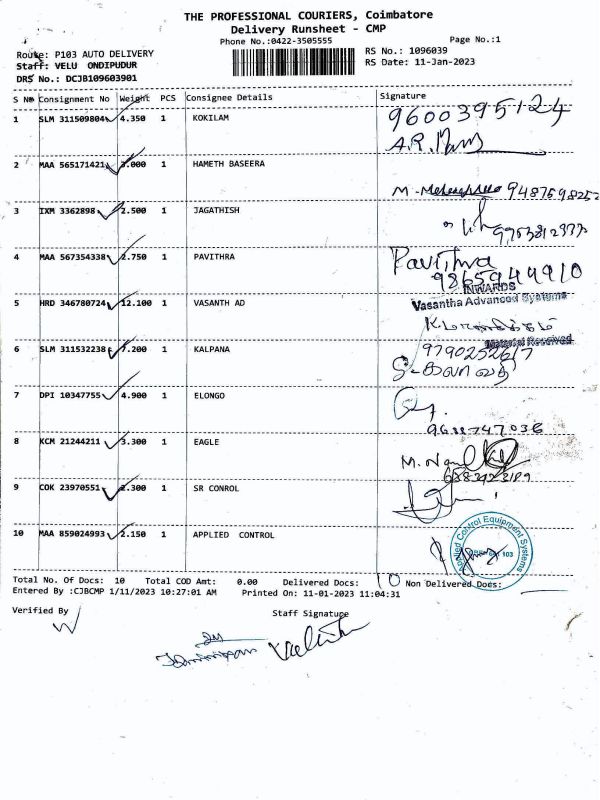 THE PROFESSIONAL COURIERS, Coimbatore
Delivery Runsheet - CMP
Phone No.:0422-3505555
Page No.:1
Route: P103 AUTO DELIVERY
RS No.: 1096039
Staff: VELU ONDIPUDUR
RS Date: 11-Jan-2023
DRS No.: DCJB109603901
S No Consignment No Weight PCS Consignee Details Signature
1 SLM 311509804 4.350 1 KOKILAM 9600395124
A.R.
2 MAA 565171421 3.000 1 HAMETH BASEERA
M. 9487698252
3 IXM 3362898 2.500 1 JAGATHISH
4 MAA 567354338 2.750 1 PAVITHRA Pavithra
9865944910
INWARDS
5 HRD 346780724 12.100 1 VASANTH AD Vasantha Advanced Systems
Material Received
6 SLM 311532238 7.200 1 KALPANA 9790252617
7 DPI 10347755 4.900 1 ELONGO
9688747036
8 KCM 21244211 3.300 1 EAGLE
M.
9 COK 23970551 2.300 1 SR CONROL
10 MAA 859024993 2.150 1 APPLIED CONTROL
Applied Control Equipment Systems
103
Total No. Of Docs: 10 Total COD Amt: 0.00 Delivered Docs: 10 Non Delivered Docs:
Entered By :CJBCMP 1/11/2023 10:27:01 AM Printed On: 11-01-2023 11:04:31
Verified By Staff Signature